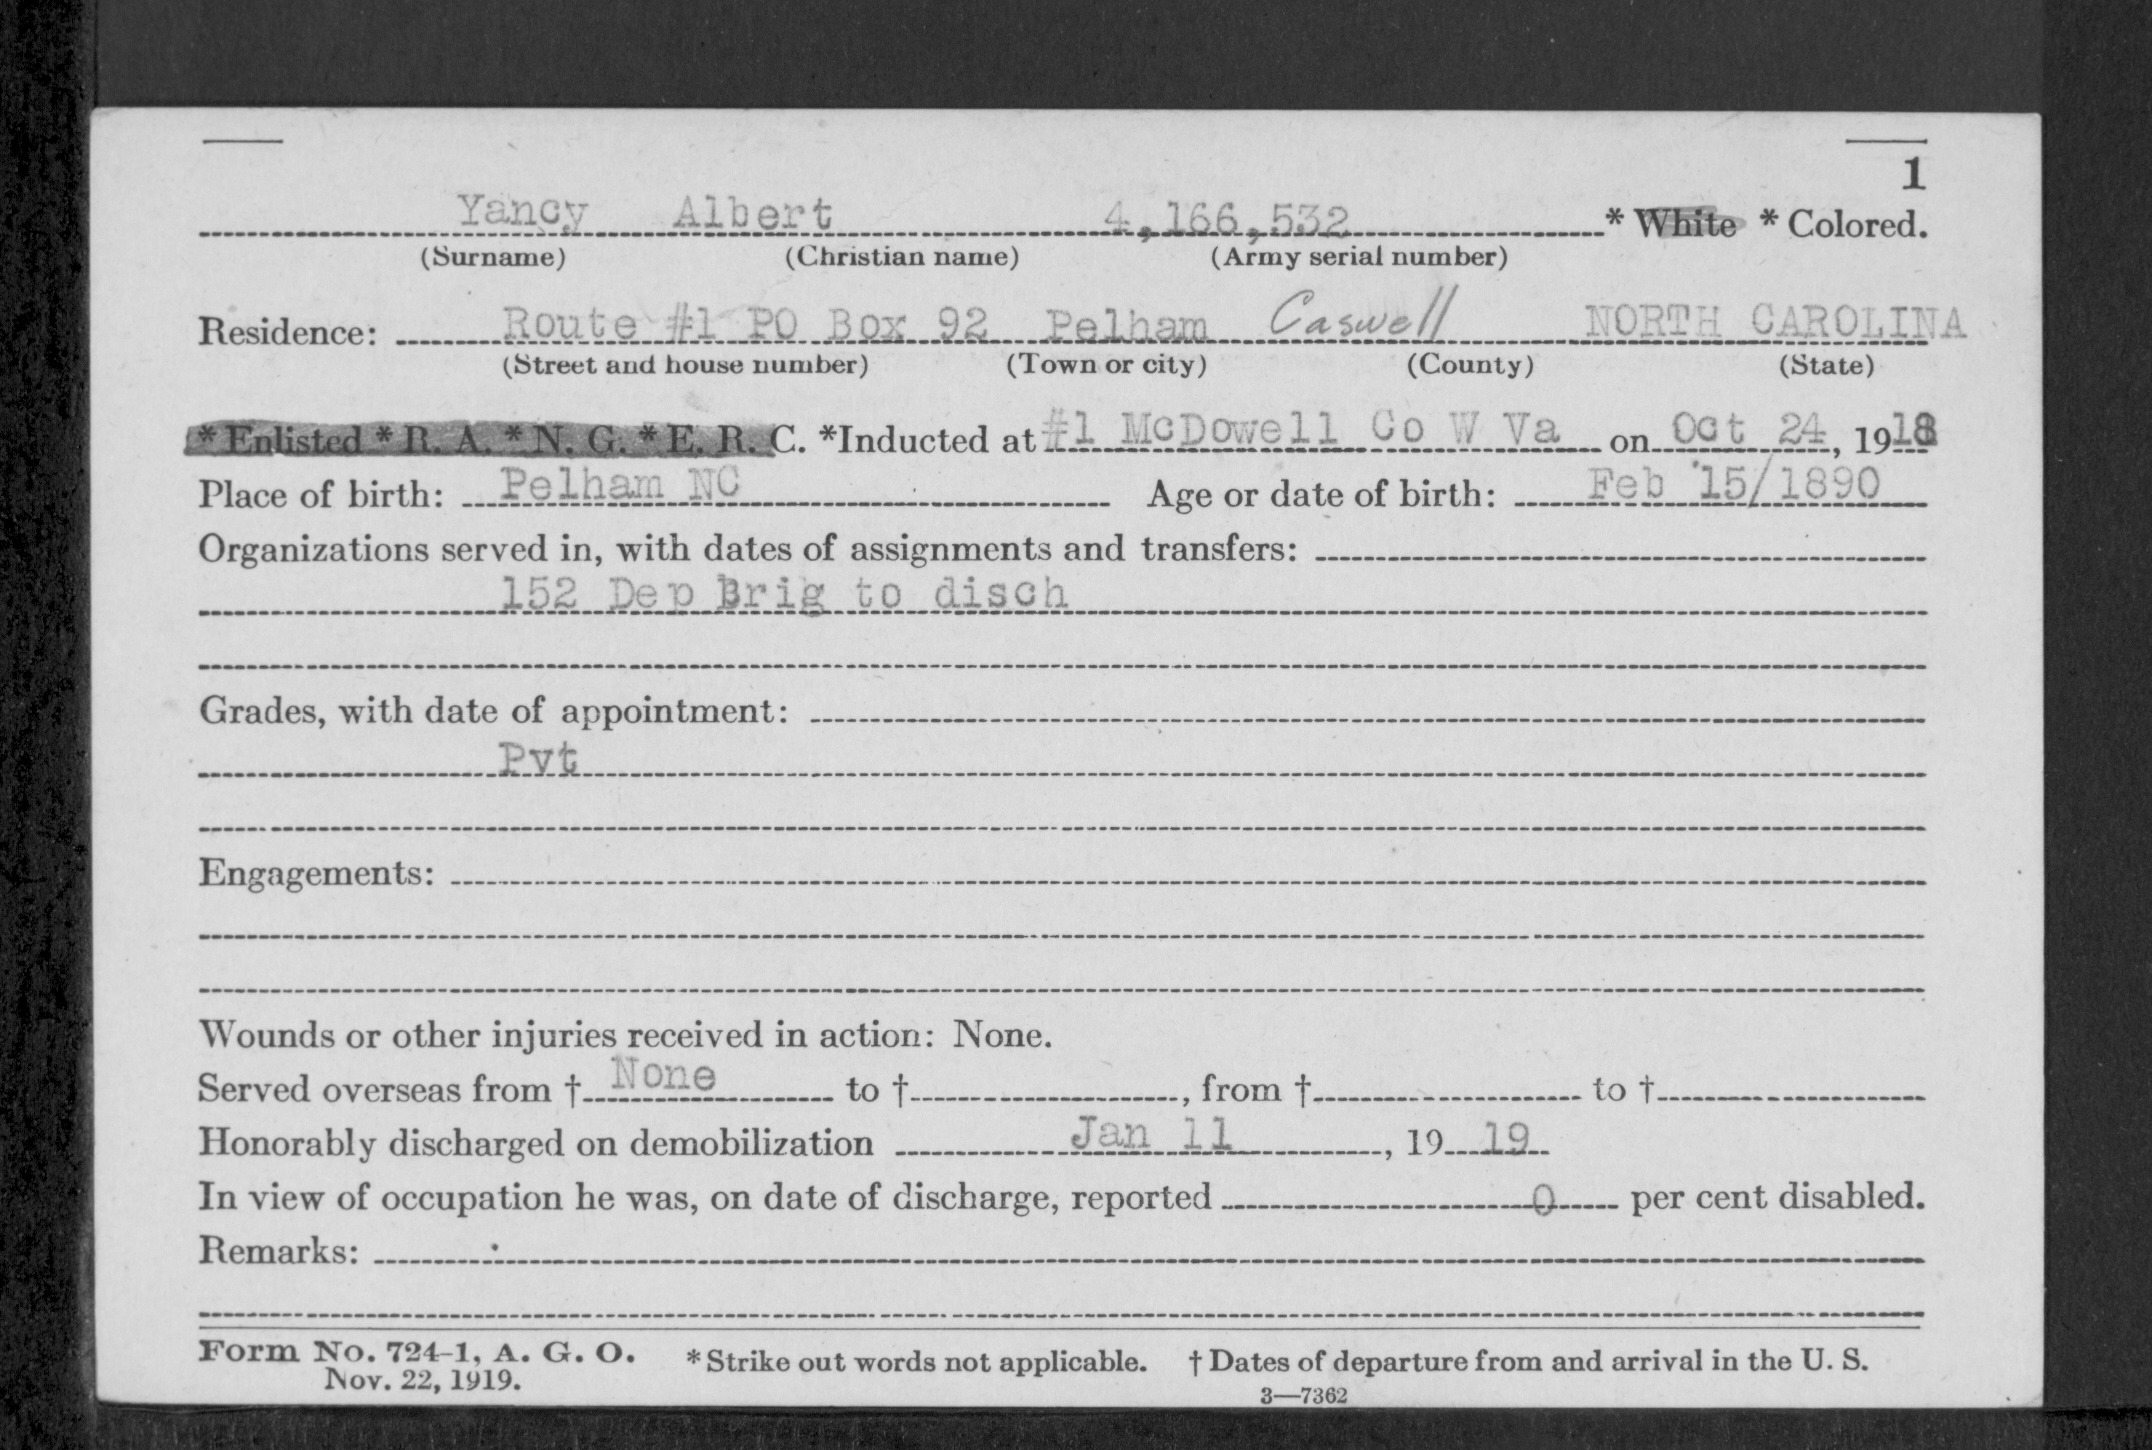 1
Yancy Albert 4,166,532 * White * Colored.
(Surname) (Christian name) (Army serial number)
Residence: Route #1 PO Box 92 Pelham Caswell NORTH CAROLINA
(Street and house number) (Town or city) (County) (State)
* Enlisted * R. A. * N. G. * E. R. C. *Inducted at #1 McDowell Co W Va on Oct 24, 1918
Place of birth: Pelham NC Age or date of birth: Feb 15/1890
Organizations served in, with dates of assignments and transfers:
152 Dep Brig to disch
Grades, with date of appointment:
Pvt
Engagements:
Wounds or other injuries received in action: None.
Served overseas from † None to †, from † to †
Honorably discharged on demobilization Jan 11, 19 19
In view of occupation he was, on date of discharge, reported 0 per cent disabled.
Remarks:
Form No. 724-1, A. G. O. * Strike out words not applicable. † Dates of departure from and arrival in the U. S.
Nov. 22, 1919.
3—7362